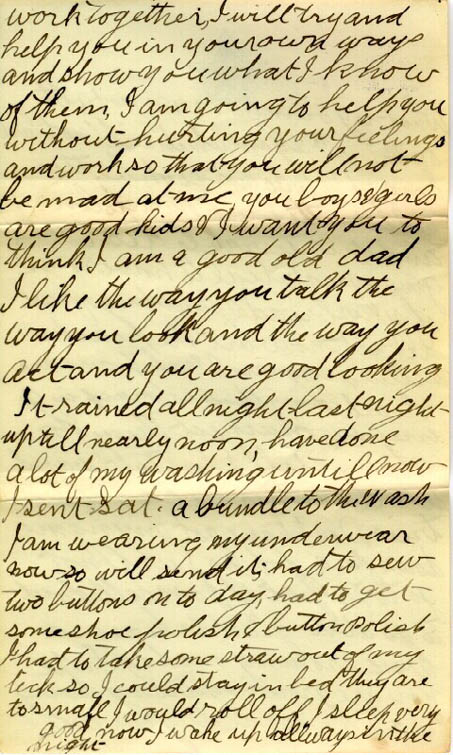 work together, I will try and
help you in your own way
and show you what I know
of them, I am going to help you
without hurting your feelings
and work so that you will not
be mad at me, you boys & girls
are good kids & I want you to
think I am a good old dad
I like the way you talk the
way you look and the way you
act and you are good looking
It rained all night last night
up till nearly noon, have done
a lot of my washing untill now
I sent Sat. a bundle to the Wash
I am wearing my underwear
now so will send it, had to sew
two buttons on to day, had to get
some shoe polish & button polish
I had to take some straw out of my
tick so I could stay in bed they are
to small I would roll off I sleep very
good now I wake up allways in the
night